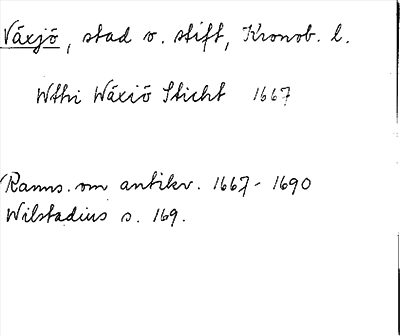 Växjö, stad o. stift, Kronob. l.
Wthi Wäxiö Sticht 1667
Ranns. om antikv. 1667-1690
Wilstadius s. 169.